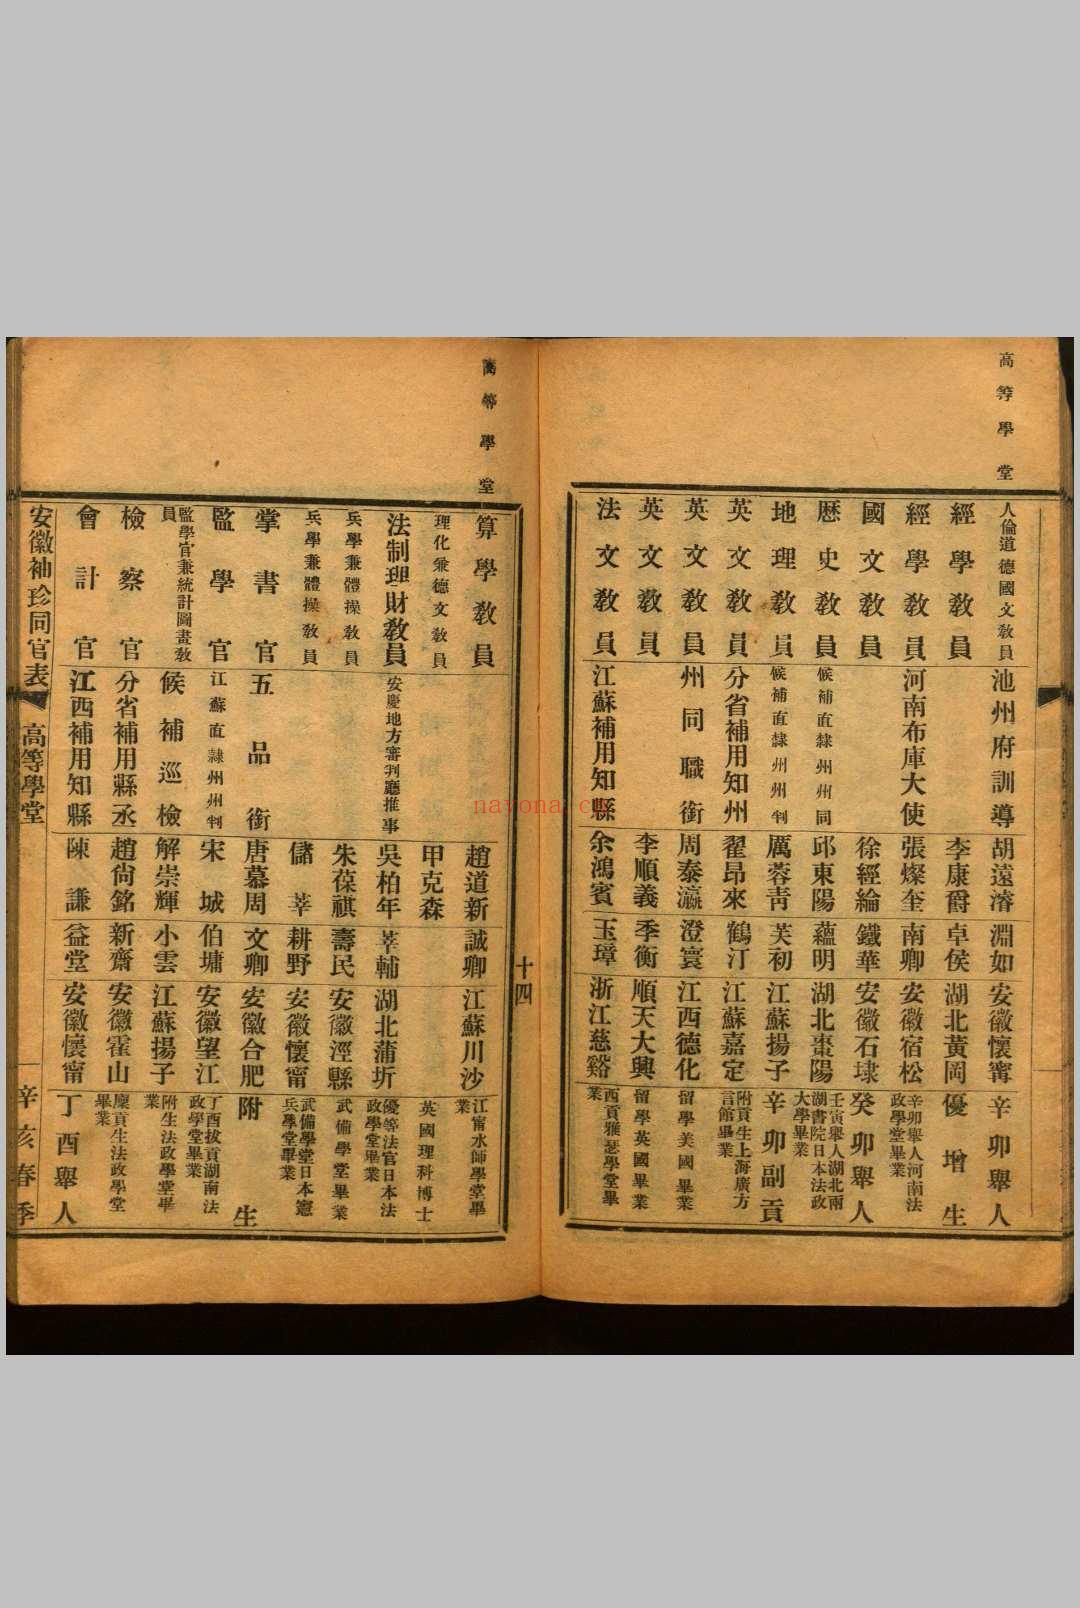 高等學堂
人倫道德國文教員 池州府訓導 胡遠濬 淵如 安徽懷甯 辛卯舉人
經學教員 李康爵 卓侯 湖北黃岡 優增生
經學教員 河南布庫大使 張燦奎 南卿 安徽宿松 辛卯舉人河南法政學堂畢業
國文教員 徐經綸 鐵華 安徽石埭 癸卯舉人
歷史教員 候補直隸州州同 邱東陽 蘊明 湖北棗陽 壬寅舉人湖北兩湖書院日本法政大學畢業
地理教員 候補直隸州州判 厲蓉青 芙初 江蘇揚子 辛卯副貢
英文教員 分省補用知州 翟昂來 鶴汀 江蘇嘉定 附貢生上海廣方言館畢業
英文教員 州同職銜 周泰瀛 澄寰 江西德化 留學美國畢業
英文教員 李順義 季衡 順天大興 留學英國畢業
法文教員 江蘇補用知縣 余鴻賓 玉璋 浙江慈谿 西貢雅瑟學堂畢業
十四
高等學堂
算學教員 趙道新 誠卿 江蘇川沙 江甯水師學堂畢業
理化兼德文教員 甲克森 英國理科博士
法制理財教員 安慶地方審判廳推事 吳柏年 莘輔 湖北蒲圻 優等法官日本法政學堂畢業
兵學兼體操教員 朱葆祺 壽民 安徽涇縣 武備學堂畢業
兵學兼體操教員 儲莘 耕野 安徽懷甯 武備學堂日本憲兵學堂畢業
掌書官 五品銜 唐慕周 文卿 安徽合肥 附生
監學官 江蘇直隸州州判 宋城 伯墉 安徽望江 丁酉拔貢湖南法政學堂畢業
監學官兼統計圖畫教員 候補巡檢 解崇輝 小雲 江蘇揚子 附生法政學堂畢業
檢察官 分省補用縣丞 趙尙銘 新齋 安徽霍山 廩貢生法政學堂畢業
會計官 江西補用知縣 陳謙 益堂 安徽懷甯 丁酉舉人
安徽袖珍同官表 高等學堂 辛亥春季